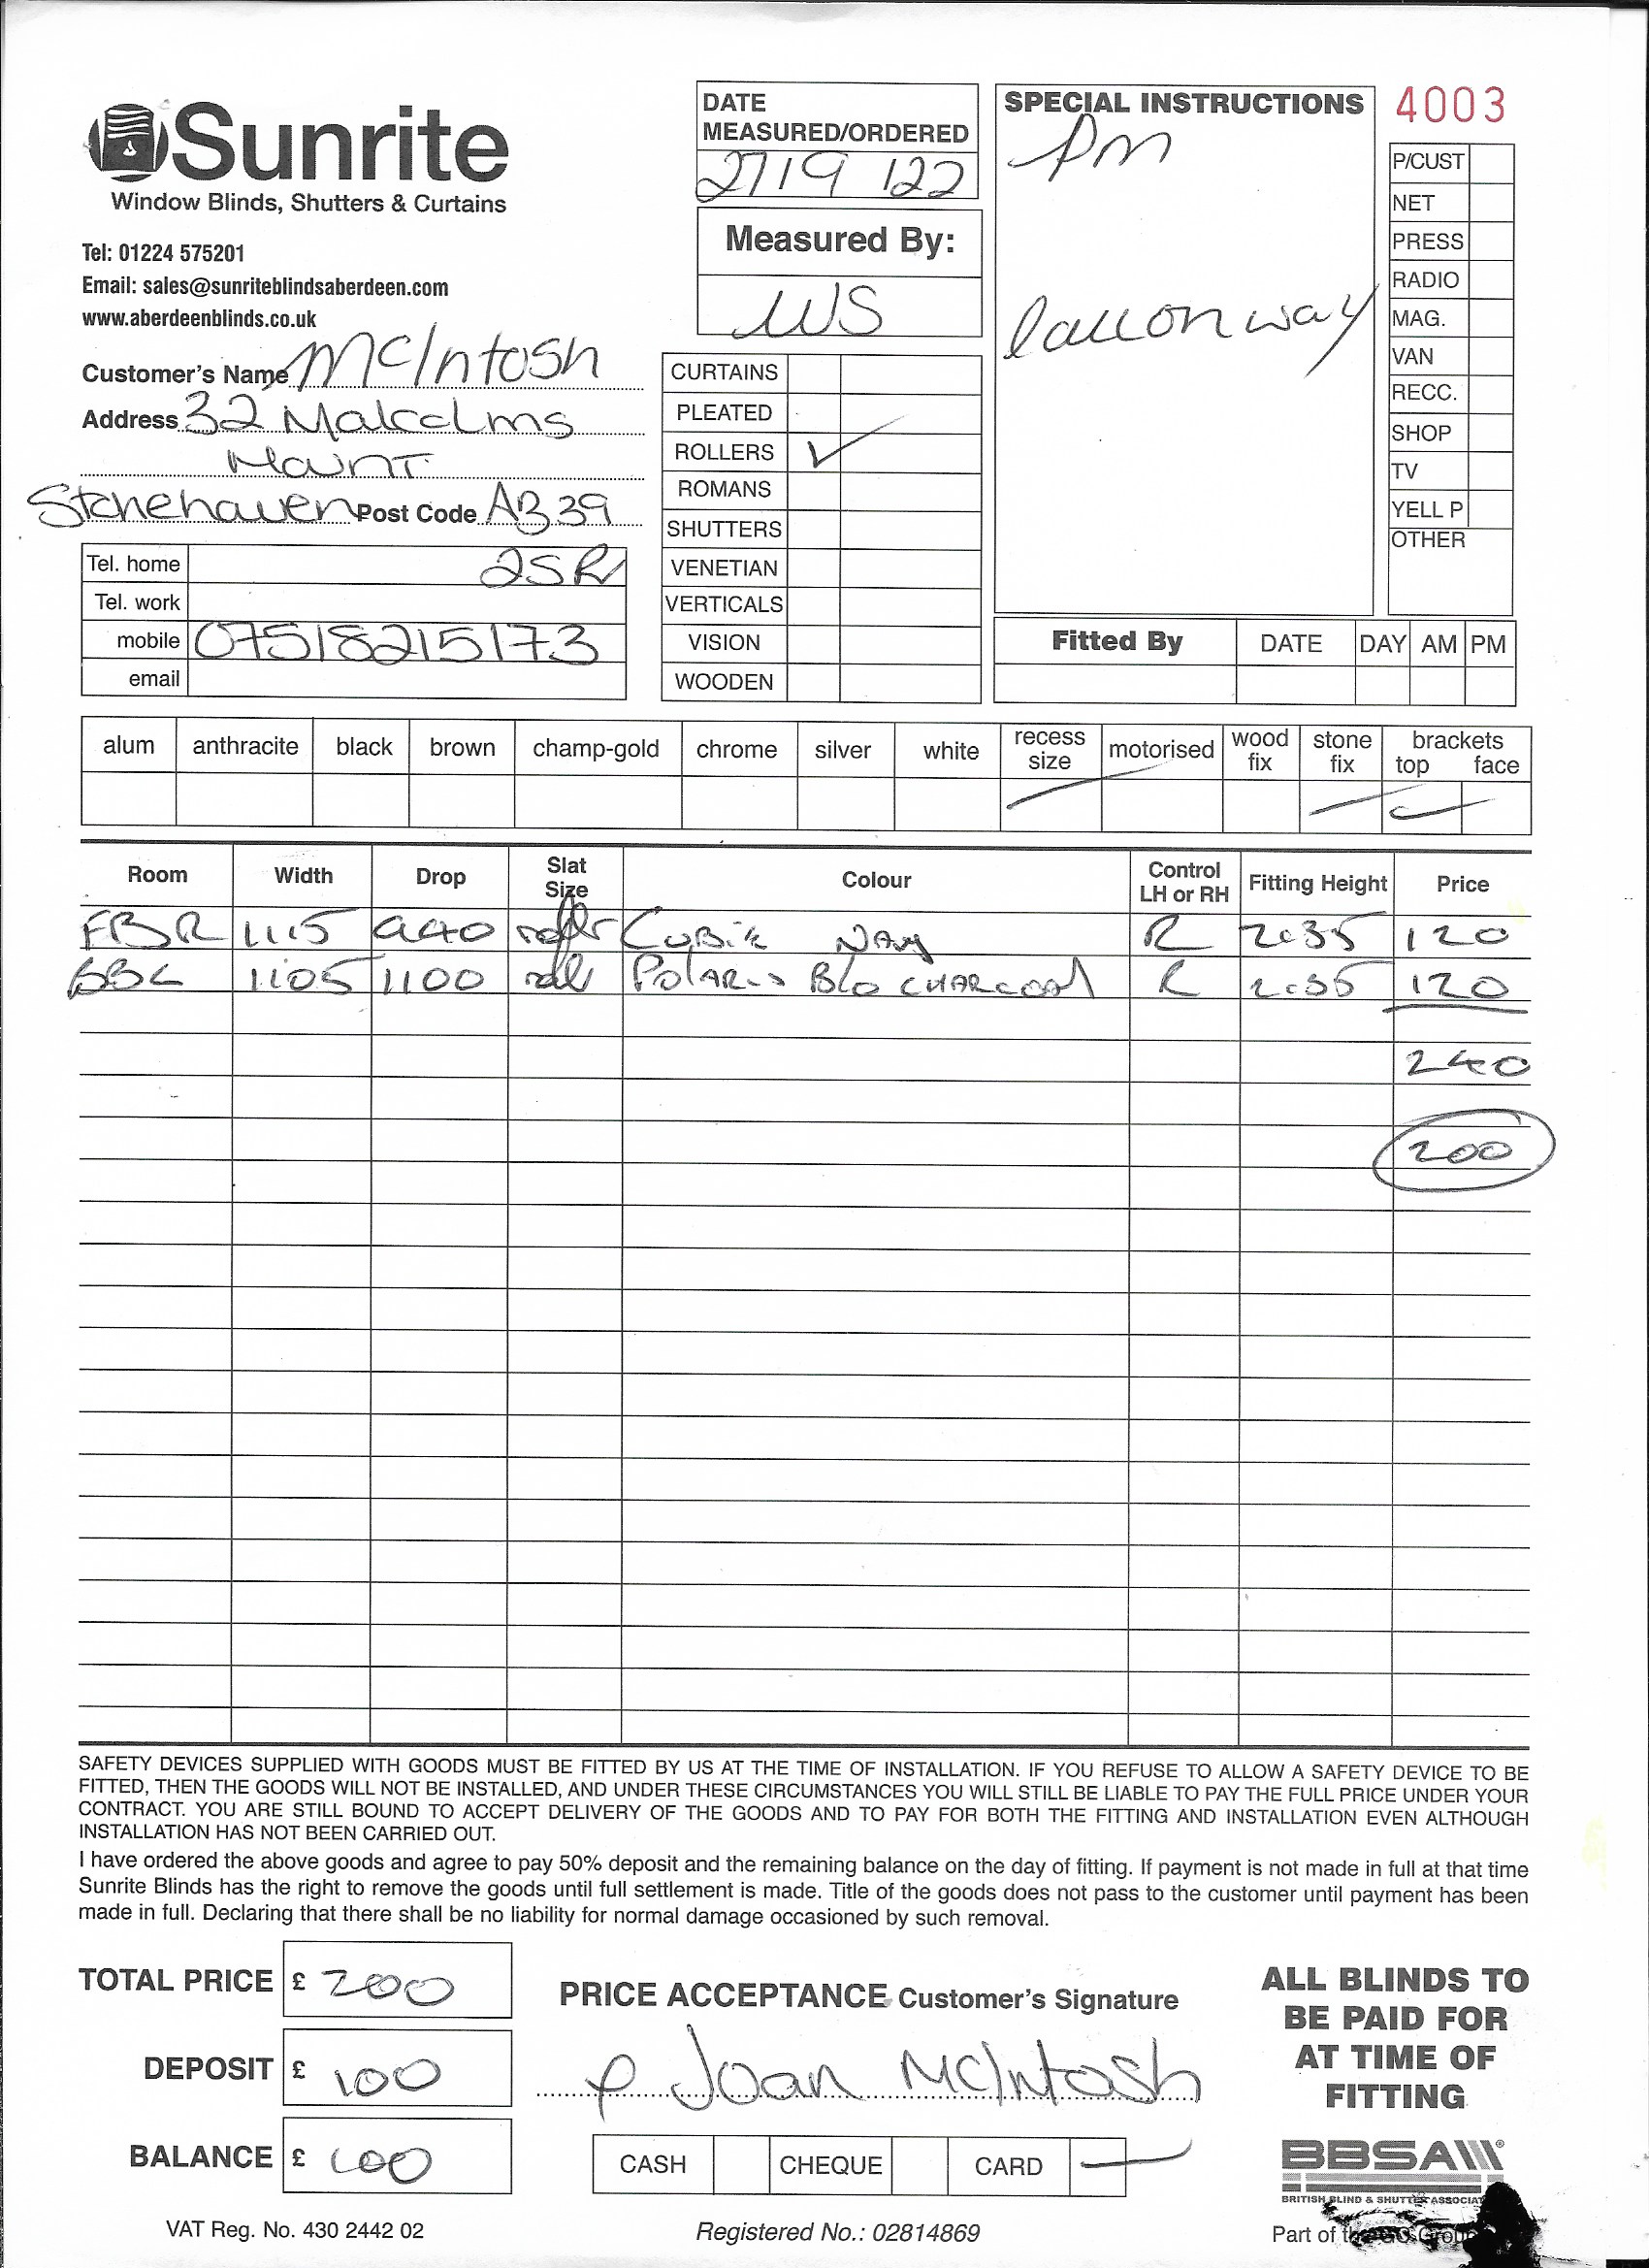 Sunrite
Window Blinds, Shutters & Curtains
Tel: 01224 575201
Email: sales@sunriteblindsaberdeen.com
www.aberdeenblinds.co.uk
Customer's Name McIntosh
Address 32 Malcolms
Mount
Stonehaven Post Code AB39
2SR
Tel. home
Tel. work
mobile 07518215173
email
DATE
MEASURED/ORDERED
27/9/22
Measured By:
WS
CURTAINS
PLEATED
ROLLERS ✓
ROMANS
SHUTTERS
VENETIAN
VERTICALS
VISION
WOODEN
SPECIAL INSTRUCTIONS
pm
call on way
4003
P/CUST
NET
PRESS
RADIO
MAG.
VAN
RECC.
SHOP
TV
YELL P
OTHER
Fitted By DATE DAY AM PM
alum anthracite black brown champ-gold chrome silver white recess size motorised wood fix stone fix brackets top face
Room Width Drop Slat Size Colour Control LH or RH Fitting Height Price
FBR 1115 940 roller Cubik Navy R 2.35 120
1105 1100 roll Polaris B/o CHARCOAL R 2.35 120
240
200
SAFETY DEVICES SUPPLIED WITH GOODS MUST BE FITTED BY US AT THE TIME OF INSTALLATION. IF YOU REFUSE TO ALLOW A SAFETY DEVICE TO BE
FITTED, THEN THE GOODS WILL NOT BE INSTALLED, AND UNDER THESE CIRCUMSTANCES YOU WILL STILL BE LIABLE TO PAY THE FULL PRICE UNDER YOUR
CONTRACT. YOU ARE STILL BOUND TO ACCEPT DELIVERY OF THE GOODS AND TO PAY FOR BOTH THE FITTING AND INSTALLATION EVEN ALTHOUGH
INSTALLATION HAS NOT BEEN CARRIED OUT.
I have ordered the above goods and agree to pay 50% deposit and the remaining balance on the day of fitting. If payment is not made in full at that time
Sunrite Blinds has the right to remove the goods until full settlement is made. Title of the goods does not pass to the customer until payment has been
made in full. Declaring that there shall be no liability for normal damage occasioned by such removal.
TOTAL PRICE £ 200
DEPOSIT £ 100
BALANCE £ 100
PRICE ACCEPTANCE Customer's Signature
p Joan McIntosh
CASH CHEQUE CARD
ALL BLINDS TO
BE PAID FOR
AT TIME OF
FITTING
BBSA
BRITISH BLIND & SHUTTER ASSOCIAT
VAT Reg. No. 430 2442 02
Registered No.: 02814869
Part of